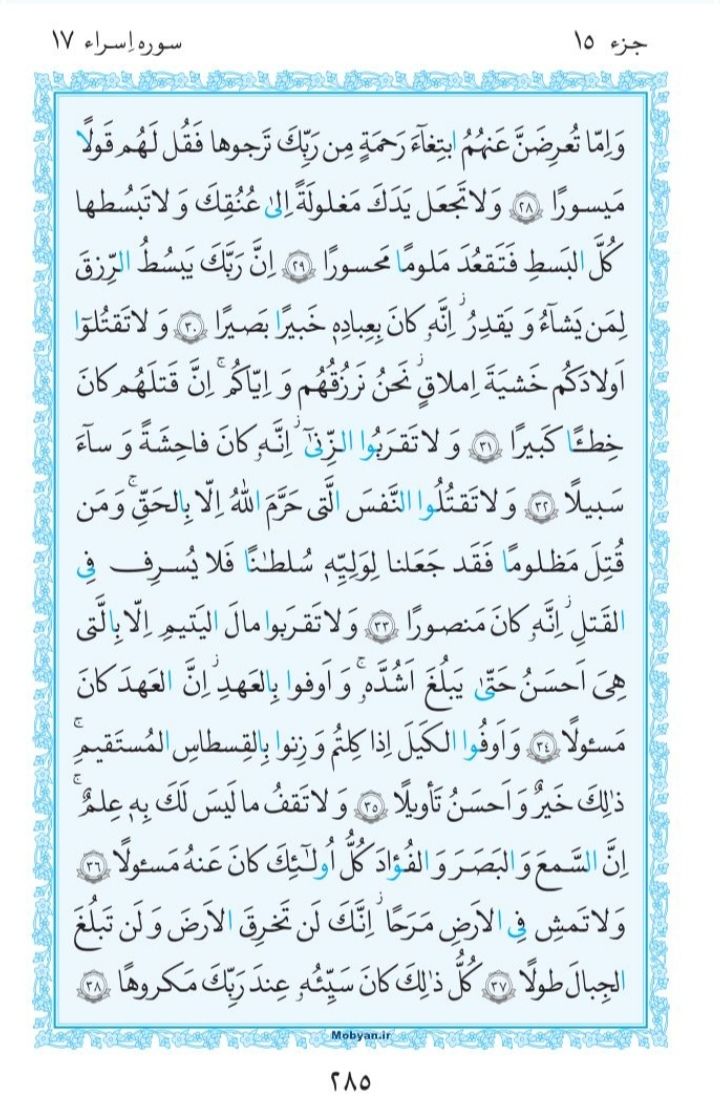 جزء ۱۵
سوره اِسراء ۱۷
وَ اِمّا تُعرِضَنَّ عَنهُمُ ابتِغآءَ رَحمَةٍ مِن رَبِّكَ تَرجوها فَقُل لَهُم قَولًا
مَيسورًا ﴿۲۸﴾ وَ لا تَجعَل يَدَكَ مَغلولَةً اِلىٰ عُنُقِكَ وَ لا تَبسُطها
كُلَّ البَسطِ فَتَقعُدَ مَلومًا مَحسورًا ﴿۲۹﴾ اِنَّ رَبَّكَ يَبسُطُ الرِّزقَ
لِمَن يَشآءُ وَ يَقدِرُ ۚ اِنَّهُ كانَ بِعِبادِهٖ خَبيرًا بَصيرًا ﴿۳۰﴾ وَ لا تَقتُلوٓا
اَولادَكُم خَشيَةَ اِملاقٍ ۖ نَحنُ نَرزُقُهُم وَ اِيّاكُم ۚ اِنَّ قَتلَهُم كانَ
خِطـًٔا كَبيرًا ﴿۳۱﴾ وَ لا تَقرَبُوا الزِّنىٰٓ ۖ اِنَّهُ كانَ فاحِشَةً وَ سآءَ
سَبيلًا ﴿۳۲﴾ وَ لا تَقتُلُوا النَّفسَ الَّتى حَرَّمَ اللّٰهُ اِلّا بِالحَقِّ ۚ وَ مَن
قُتِلَ مَظلومًا فَقَد جَعَلنا لِوَلِيِّهٖ سُلطٰنًا فَلا يُسرِف فِى
القَتلِ ۖ اِنَّهُ كانَ مَنصورًا ﴿۳۳﴾ وَ لا تَقرَبوا مالَ اليَتيمِ اِلّا بِالَّتى
هِىَ اَحسَنُ حَتّىٰ يَبلُغَ اَشُدَّهُ ۚ وَ اَوفوا بِالعَهدِ ۖ اِنَّ العَهدَ كانَ
مَسئولًا ﴿۳۴﴾ وَ اَوفُوا الكَيلَ اِذا كِلتُم وَ زِنوا بِالقِسطاسِ المُستَقيمِ ۚ
ذٰلِكَ خَيرٌ وَ اَحسَنُ تَأويلًا ﴿۳۵﴾ وَ لا تَقفُ ما لَيسَ لَكَ بِهٖ عِلمٌ ۚ
اِنَّ السَّمعَ وَ البَصَرَ وَ الفُؤادَ كُلُّ اُولٰٓئِكَ كانَ عَنهُ مَسئولًا ﴿۳۶﴾
وَ لا تَمشِ فِى الاَرضِ مَرَحًا ۖ اِنَّكَ لَن تَخرِقَ الاَرضَ وَ لَن تَبلُغَ
الجِبالَ طولًا ﴿۳۷﴾ كُلُّ ذٰلِكَ كانَ سَيِّئُهُ عِندَ رَبِّكَ مَكروهًا ﴿۳۸﴾
Mobyan.ir
۲۸۵